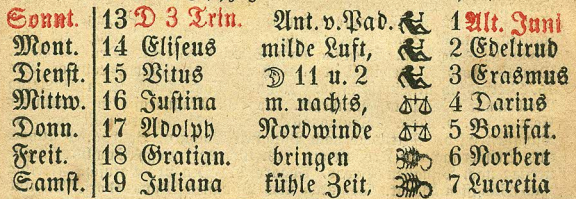 Sonnt. 13 D 3 Trin. Ant. v. Pad. 1 Alt. Juni
Mont. 14 Eliseus milde Luft, 2 Edeltrud
Dienst. 15 Vitus ☽ 11 u. 2 3 Erasmus
Mittw. 16 Justina m. nachts, 4 Darius
Donn. 17 Adolph Nordwinde 5 Bonifat.
Freit. 18 Gratian. bringen 6 Norbert
Samst. 19 Juliana kühle Zeit, 7 Lucretia